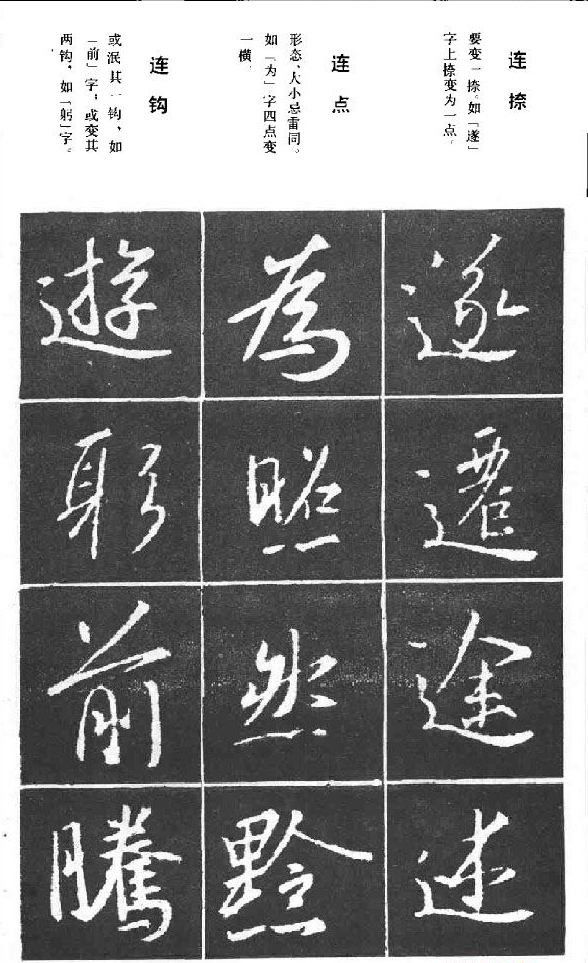 连捺
要变一捺。如「遂」
字上捺变为一点。
连点
形态、大小忌雷同。
如「为」字四点变
一横。
连钩
或泯其一钩，如
「前」字，或变其
两钩，如「躬」字。
遂
遷
途
述
為
照
然
黔
遊
躬
前
騰